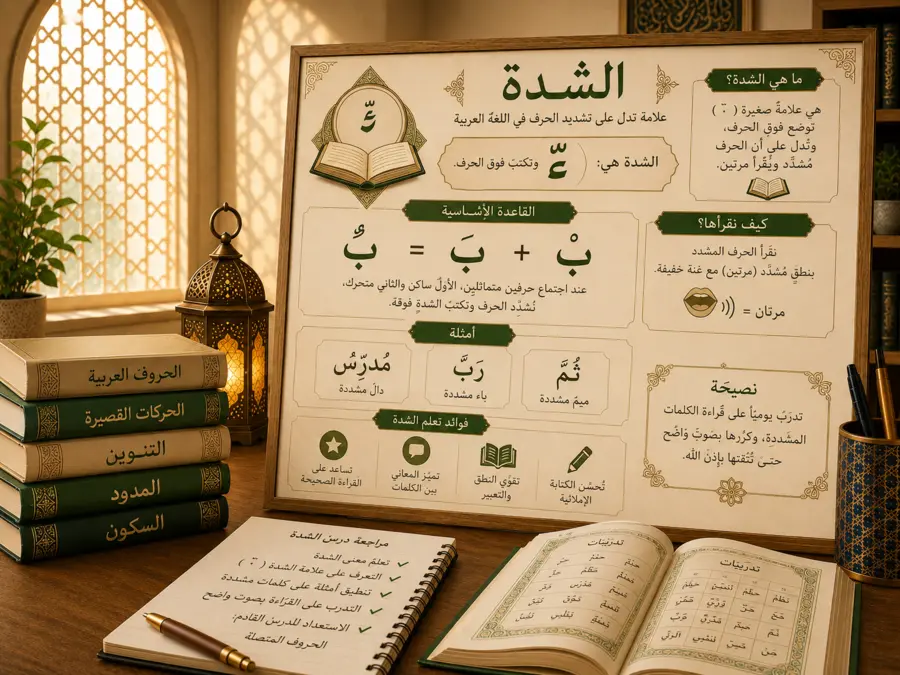 الشدة
علامة تدل على تشديد الحرف في اللغة العربية
الشدة هي: ـَّـ وتكتب فوق الحرف.
ما هي الشدة؟
هي علامةً صغيرة ( ّ )
توضع فوق الحرف،
وتُدل على أن الحرف
مُشدَّد ويُقرأ مرتين.
القاعدة الأساسية
بْ + بَ = بُ
عند اجتماع حرفين متماثلين، الأولّ ساكن والثاني متحرك،
نُشدِّد الحرف وتكتبّ الشدة فوقة.
كيف نقرأها؟
نقرأ الحرف المشدد
بنطقٍ مُشدَّد (مرتين) مع غنة خفيفة.
مرتان =
أمثلة
ثُمَّ
ميمُ مشددة
رَبَّ
باء مشددة
مُدرِّسُ
دالَ مشددة
نصيحَة
تدربَ يوميًا على قراءة الكلمات
المشددة، وكررها بصوتَ وَاضَح
حتىَ تُتْقنها بإذن الله.
فوائد تعلم الشدة
تُحسّن الكتابة
الإملائية
تقوّي النطق
والتعبير
تميّز المعاني
بين الكلمات
تساعد على
القراءة الصحيحة
الحروف العربية
الحركات القصيرة
التنوين
المدود
السكون
مراجعة درس الشدة
تعلم معنى الشدة
التعرف على علامة الشدة ( ّ )
تنطيق أمثلة على كلمات مشددة
التدرب على القراءة بصوت واضح
الاستعداد للدرس القادم:
الحروف المتصلة
تدريبات
تدريبات